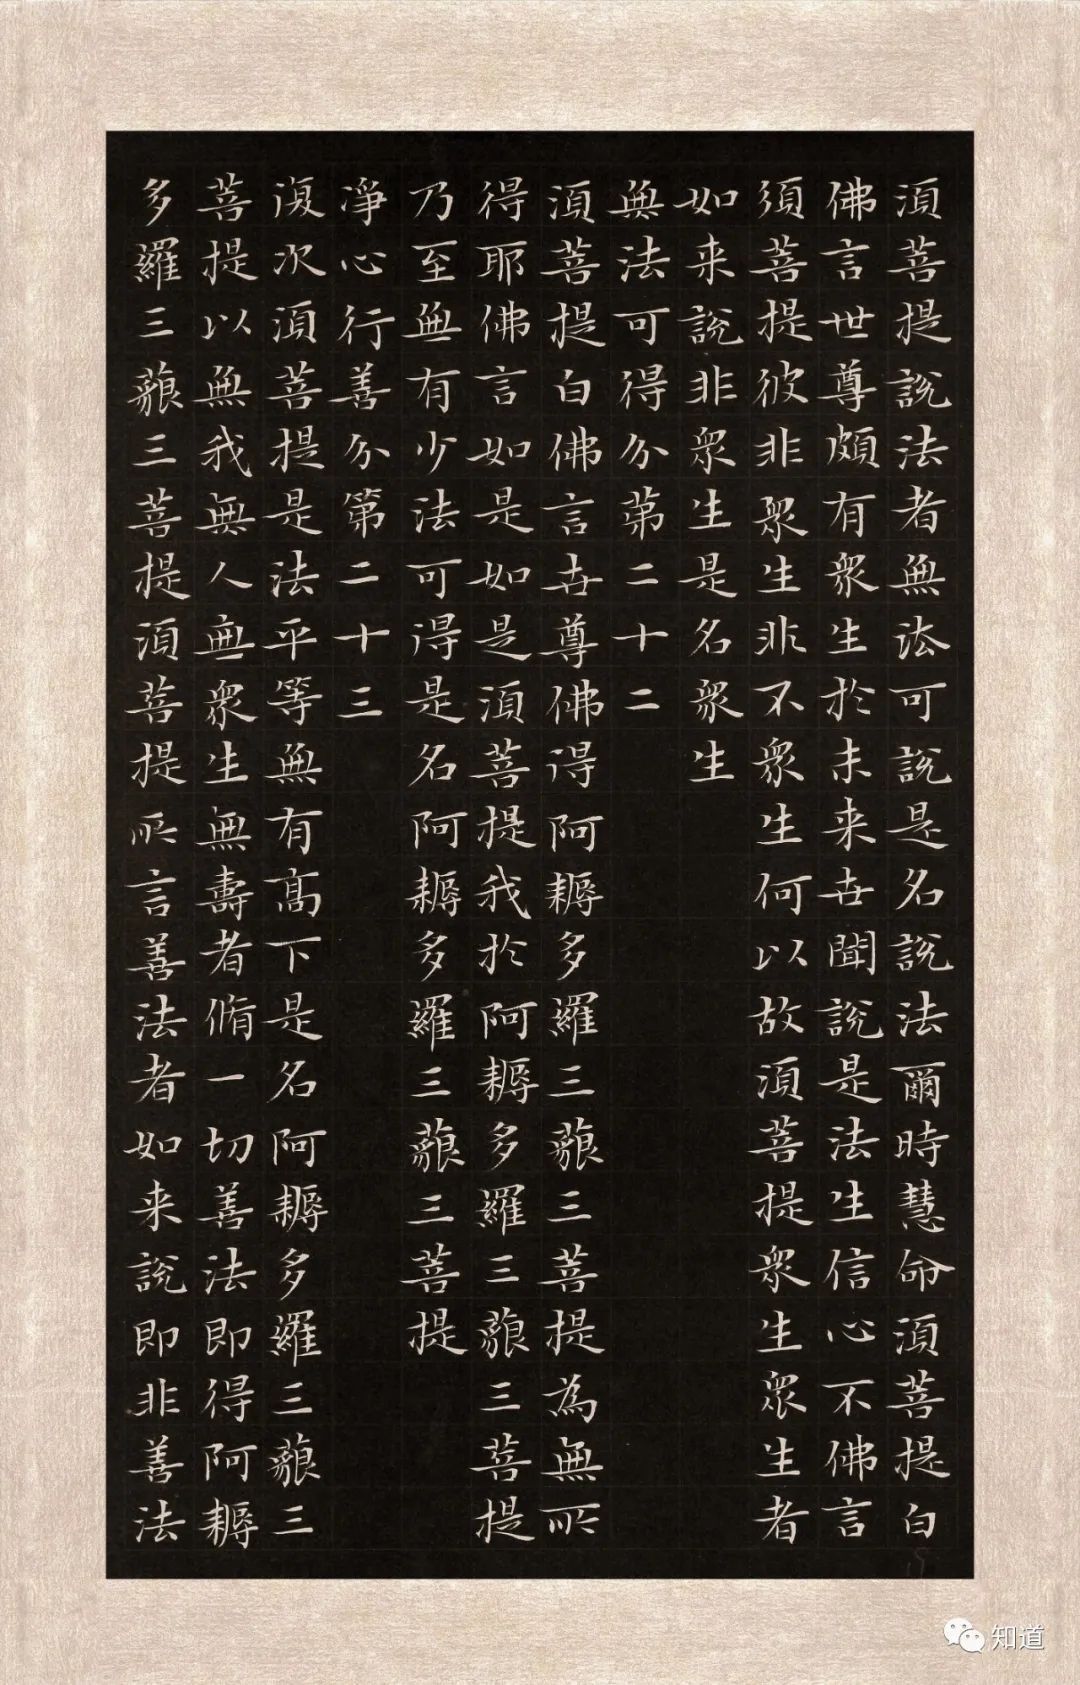 湏菩提說法者無法可說是名說法爾時慧命湏菩提白
佛言世尊頗有衆生於未来世聞說是法生信心不佛言
須菩提彼非衆生非不衆生何以故湏菩提衆生衆生者
如来說非衆生是名衆生
無法可得分苐二十二
湏菩提白佛言世尊佛得阿耨多羅三藐三菩提為無所
得耶佛言如是如是湏菩提我於阿耨多羅三藐三菩提
乃至無有少法可得是名阿耨多羅三藐三菩提
淨心行善分第二十三
復次湏菩提是法平等無有髙下是名阿耨多羅三藐三
菩提以無我無人無衆生無壽者脩一切善法即得阿耨
多羅三藐三菩提湏菩提所言善法者如来說即非善法
知道